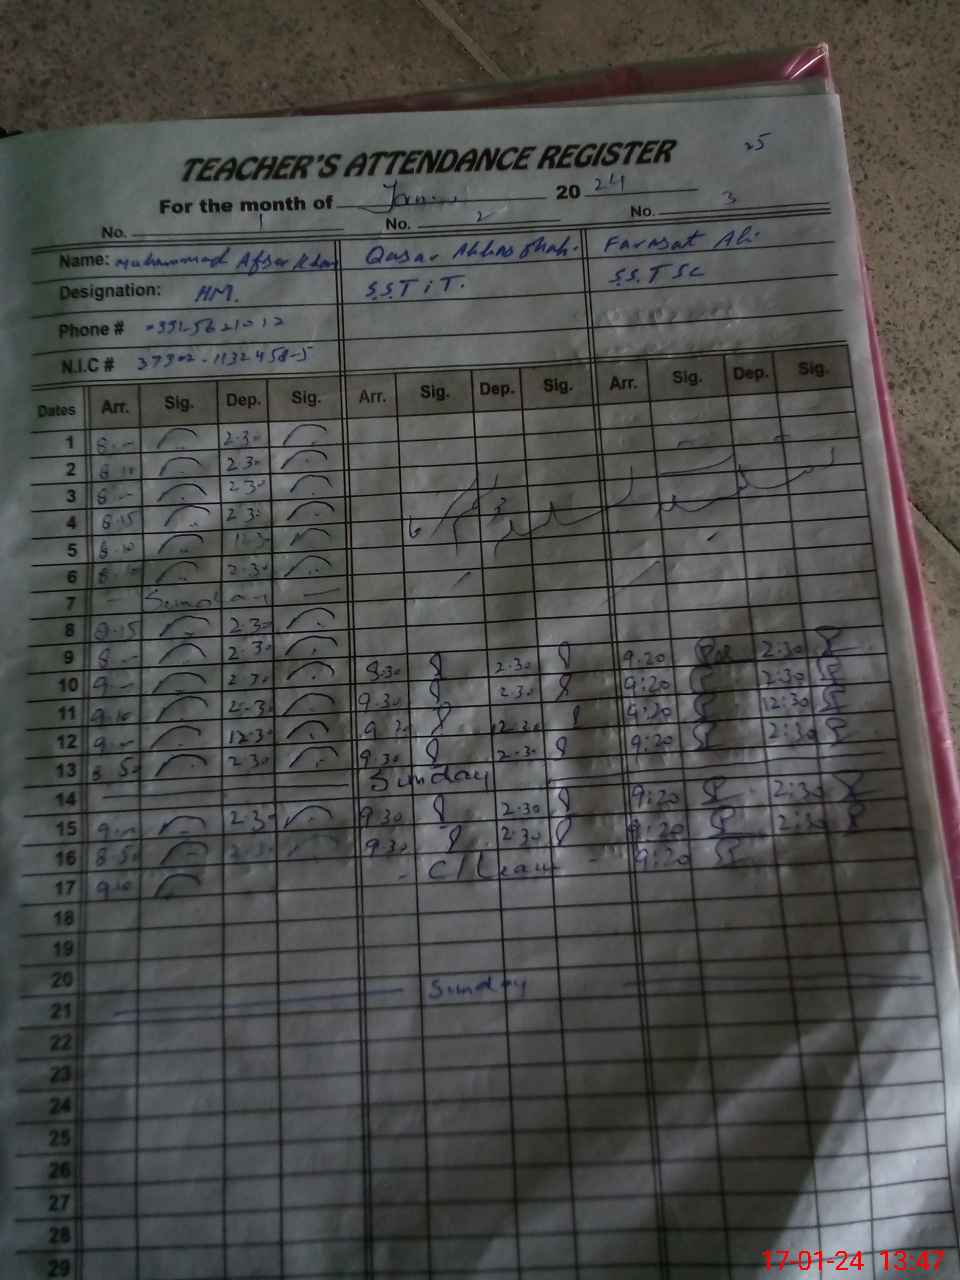 25
TEACHER'S ATTENDANCE REGISTER
For the month of 2024
No. 1 No. 2 No. 3
Name: Muhammad Afsar Khan Qasar Abbas Shah. Farasat Ali
Designation: HM. S.S.T iT. S.S.T SC
Phone #
N.I.C #
Dates Arr. Sig. Dep. Sig. Arr. Sig. Dep. Sig. Arr. Sig. Dep. Sig.
1 8.- 2.30
2 8.10 2.30
3 8.- 2.30
4 8.15 2.30
5 8.10
6 2.30
7 - Sunday -
8 8.15 2.30
9 8.- 2.30 8.30 2.30 9.20 2.30
10 9.- 2.30 9.30 2.30 9:20 2.30
11 9.10 2.30 9.30 12.30 9:20 12:30
12 9.- 12.30 9.30 2.30 9:20 2:30
13 8.50 2.30 Sunday
14 9:20 2:30
15 9.- 2.30 9.30 2.30 9:20 2:30
16 8.50 2.30 9.30 2.30 9:20
17 9.10 - C/Leave -
18
19
20
21 Sunday
22
23
24
25
26
27
28
29
17-01-24 13:47